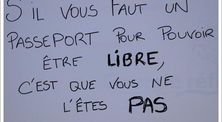 S'IL VOUS FAUT UN
PASSEPORT POUR POUVOIR
ÊTRE LIBRE,
C'EST QUE VOUS NE
L'ÊTES PAS